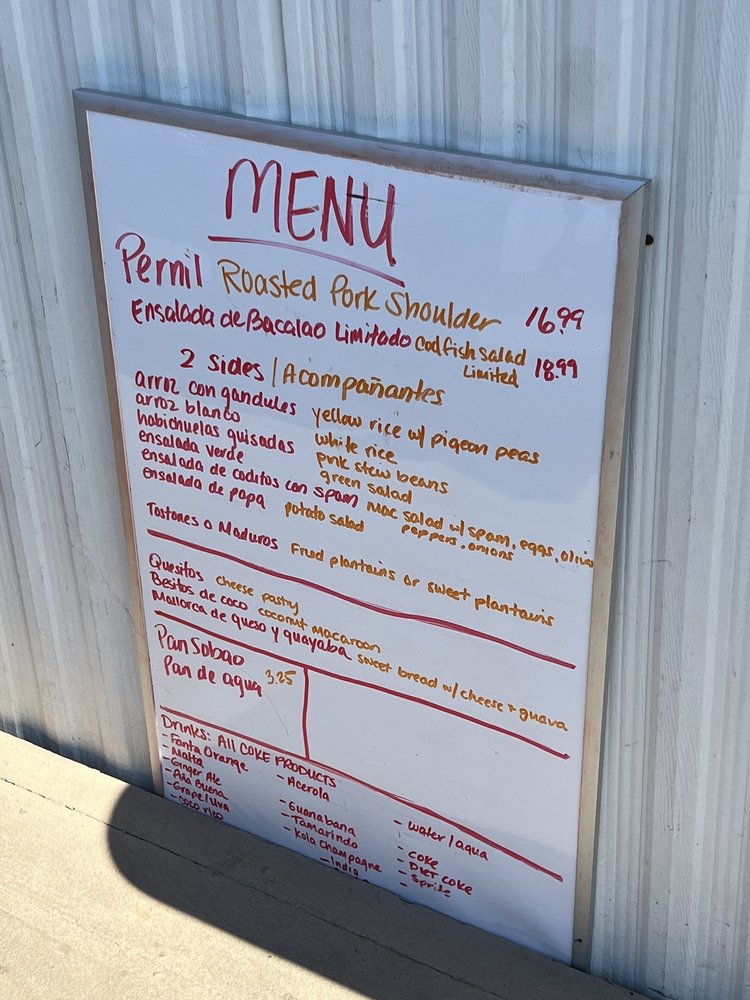 MENU
Pernil Roasted Pork Shoulder 16.99
Ensalada de Bacalao Limitado Codfish salad Limited 18.99
2 Sides / Acompañantes
arroz con gandules yellow rice w/ pigeon peas
arroz blanco white rice
habichuelas guisadas pink stew beans
ensalada verde green salad
ensalada de coditos con spam Mac salad w/ spam, eggs, olives peppers, onions
ensalada de papa potato salad
Tostones o Maduros Fried plantains or sweet plantains
Quesitos cheese pastry
Besitos de coco coconut macaroon
Mallorca de queso y guayaba sweet bread w/ cheese + guava
Pan Sobao
Pan de agua 3.25
Drinks: All COKE PRODUCTS
- Fanta Orange - Acerola
- Malta
- Ginger Ale - Guanabana - water/agua
- Piña Buena - Tamarindo
- Grape/Uva - Kola Champagne - COKE
- coco rico - India - DIET COKE
- Sprite